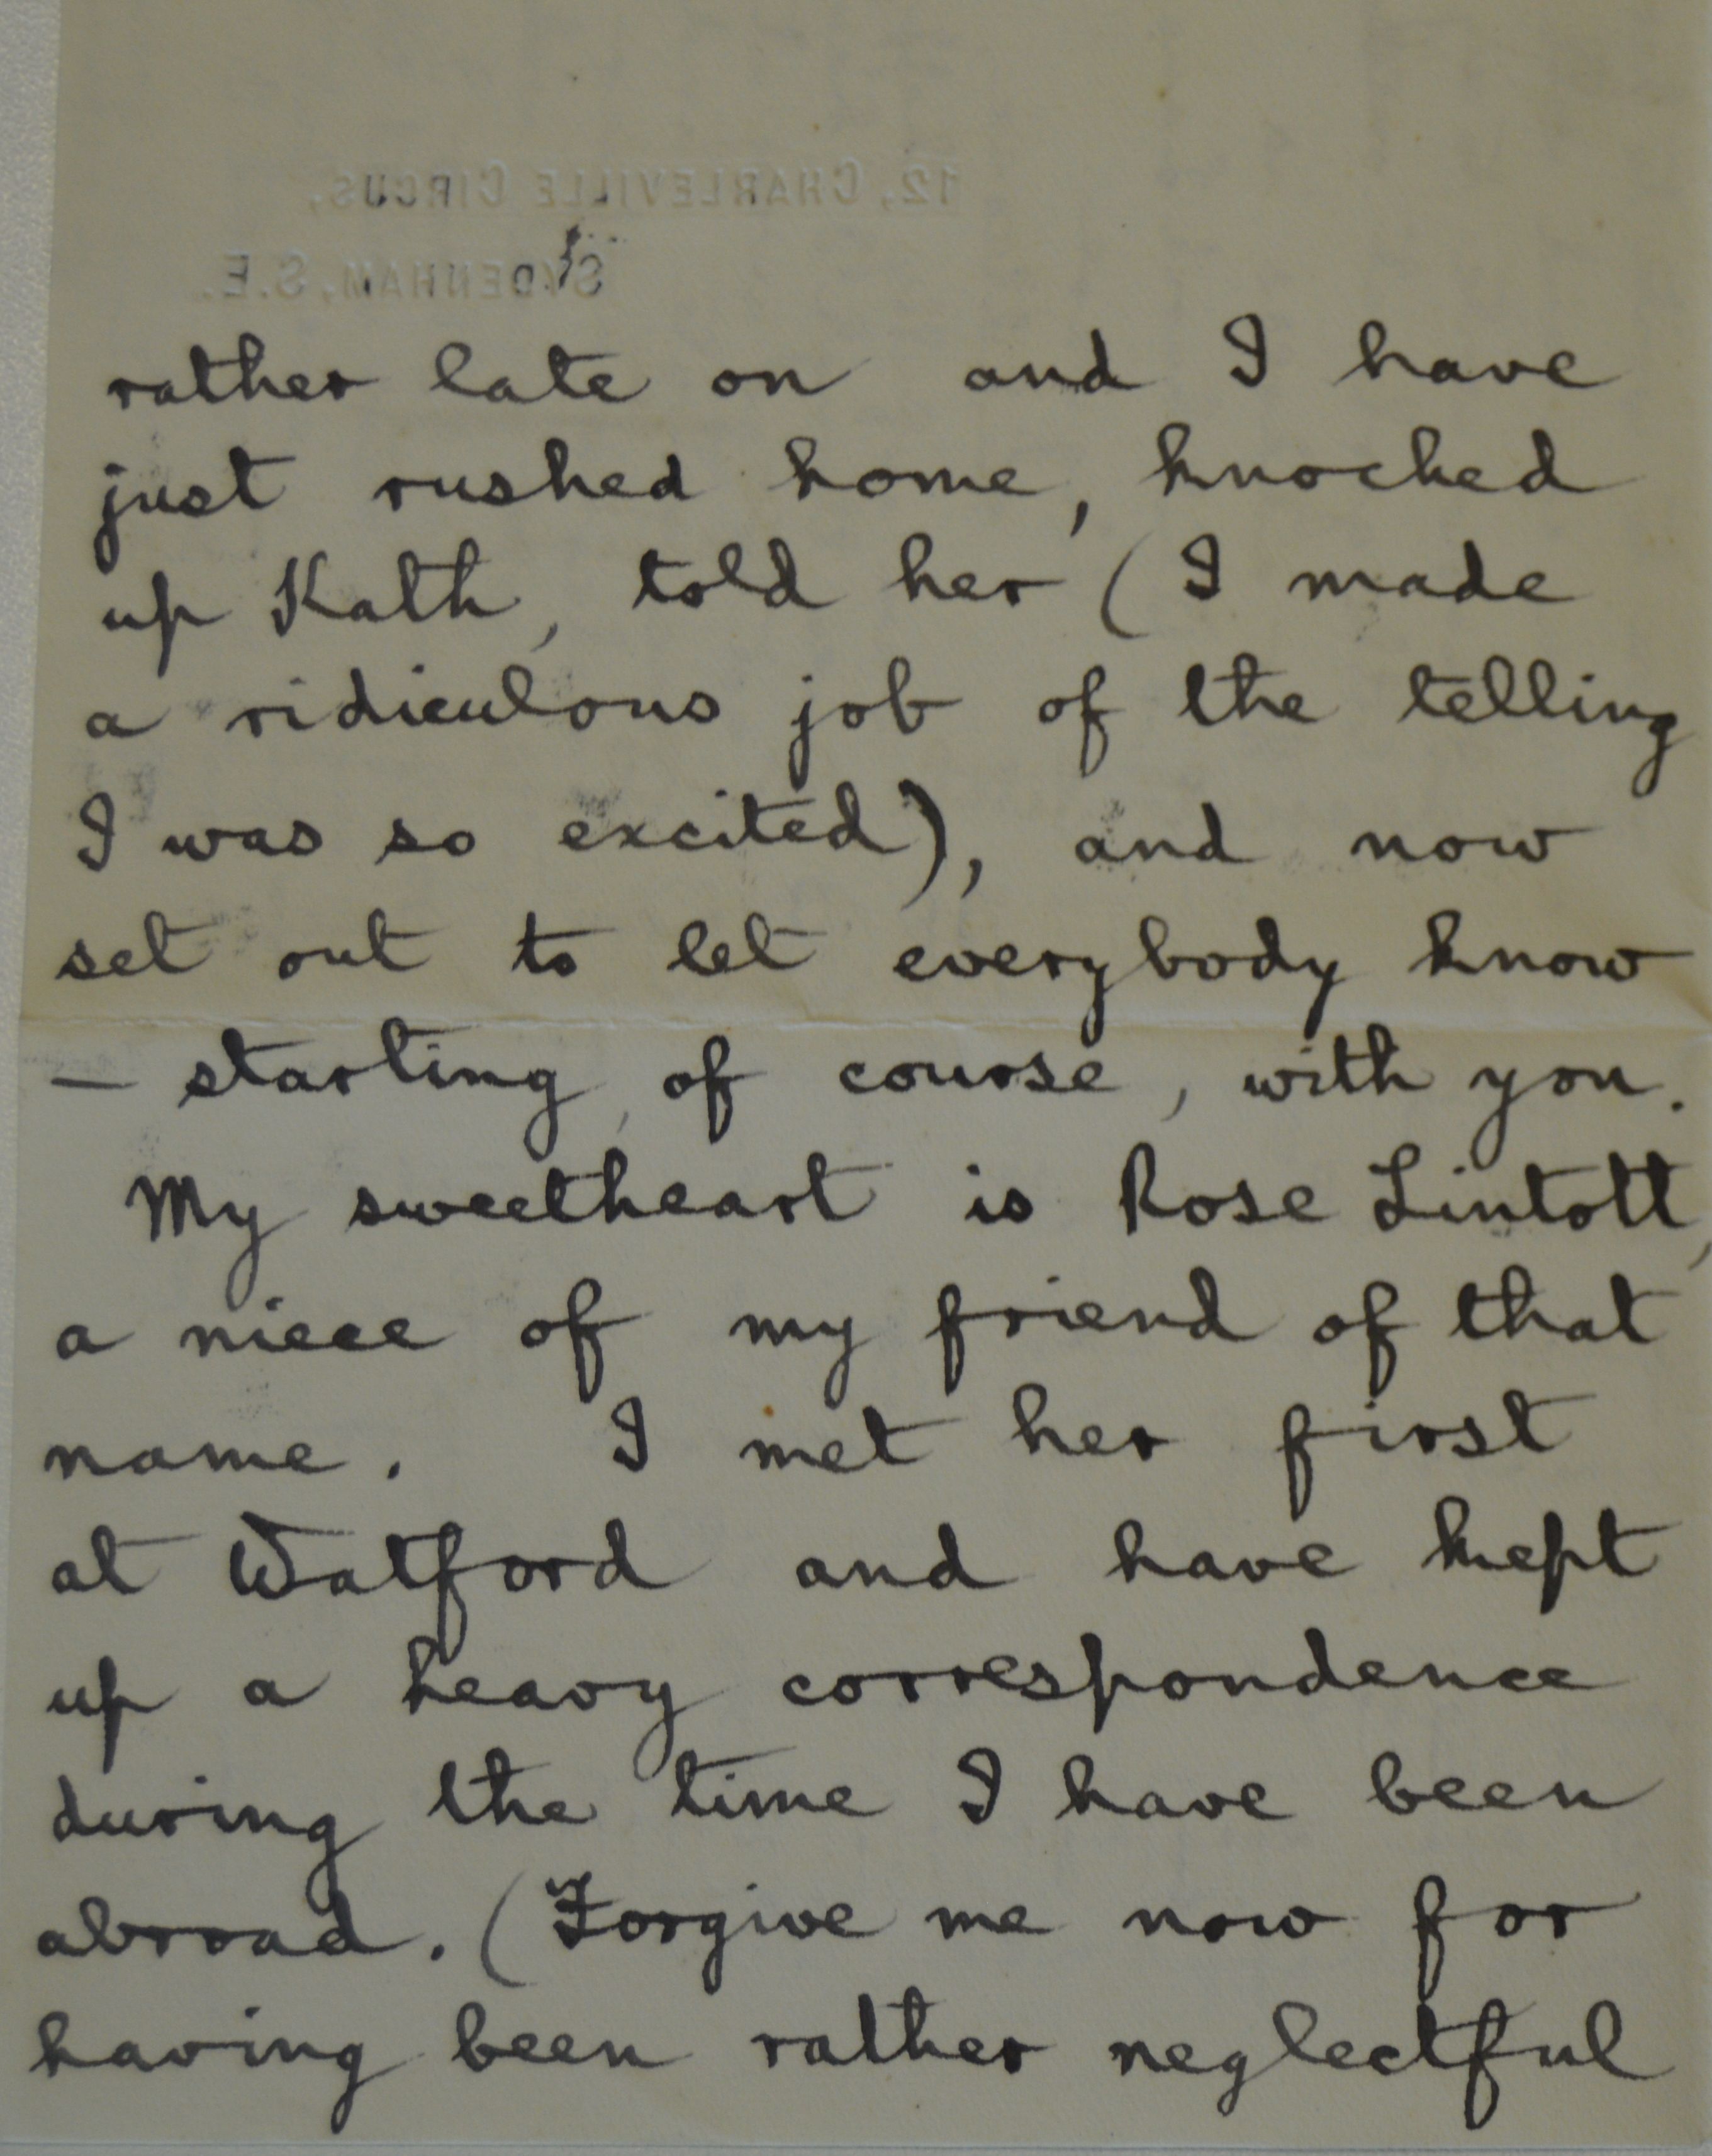 12, CHARLEVILLE CIRCUS,
SYDENHAM, S.E.
rather late on and I have
just rushed home, knocked
up Kath, told her (I made
a ridiculous job of the telling
I was so excited), and now
set out to let everybody know
— starting, of course, with you.
My sweetheart is Rose Lintott,
a niece of my friend of that
name. I met her first
at Watford and have kept
up a heavy correspondence
during the time I have been
abroad. (Forgive me now for
having been rather neglectful